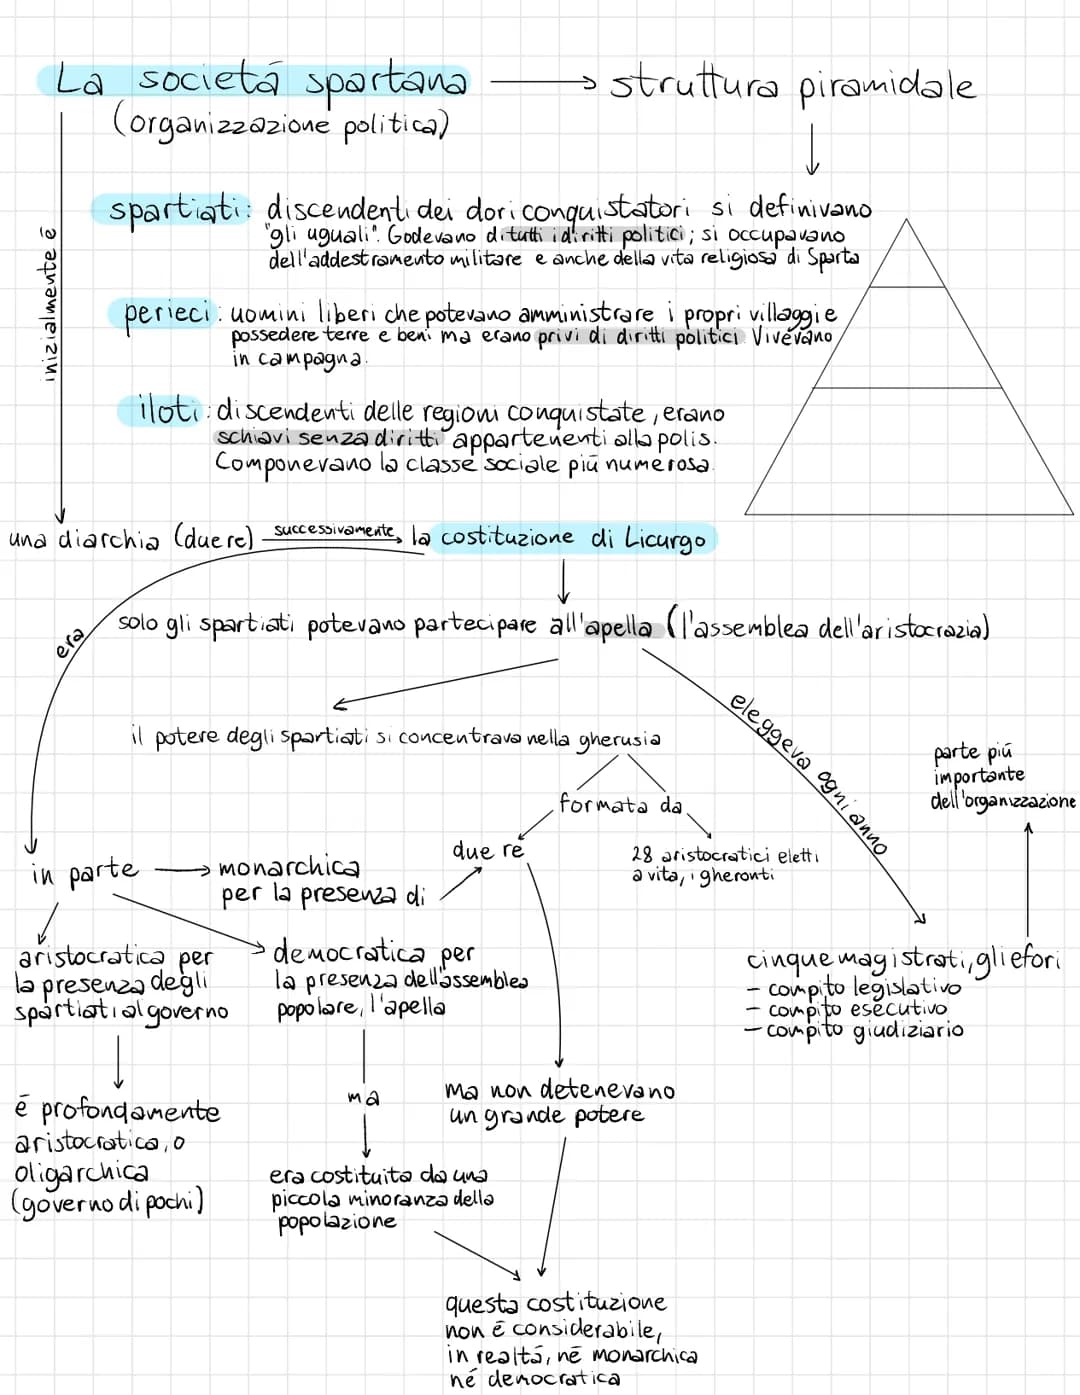 La società spartana → struttura piramidale
(organizzazione politica)
inizialmente è
spartiati: discendenti dei dori conquistatori si definivano
"gli uguali". Godevano di tutti i diritti politici; si occupavano
dell'addestramento militare e anche della vita religiosa di Sparta
perieci: uomini liberi che potevano amministrare i propri villaggi e
possedere terre e beni ma erano privi di diritti politici. Vivevano
in campagna.
iloti: discendenti delle regioni conquistate, erano
schiavi senza diritti appartenenti alla polis.
Componevano la classe sociale più numerosa.
una diarchia (due re) successivamente, la costituzione di Licurgo
era
solo gli spartiati potevano partecipare all'apella (l'assemblea dell'aristocrazia)
il potere degli spartiati si concentrava nella gherusia
eleggeva ogni anno
parte più
importante
dell'organizzazione
formata da
due re
28 aristocratici eletti
a vita, i gheronti
in parte → monarchica
per la presenza di
aristocratica per
la presenza degli
spartiati al governo
democratica per
la presenza dell'assemblea
popolare, l'apella
cinque magistrati, gli efori
- compito legislativo
- compito esecutivo
- compito giudiziario
è profondamente
aristocratica, o
oligarchica
(governo di pochi)
ma
ma non detenevano
un grande potere
era costituita da una
piccola minoranza della
popolazione
questa costituzione
non è considerabile,
in realtà, né monarchica
né democratica